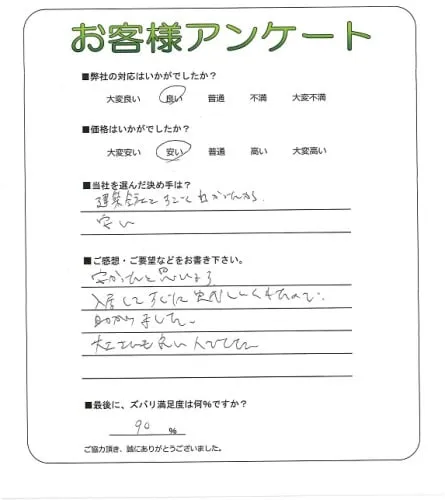 お客様アンケート
■弊社の対応はいかがでしたか？
大変良い 良い 普通 不満 大変不満
■価格はいかがでしたか？
大変安い 安い 普通 高い 大変高い
■当社を選んだ決め手は？
安い
■ご感想・ご要望などをお書き下さい。
安かったと思います
助かりました。
大工さんも良い人でした
■最後に、ズバリ満足度は何％ですか？
90 ％
ご協力頂き、誠にありがとうございました。